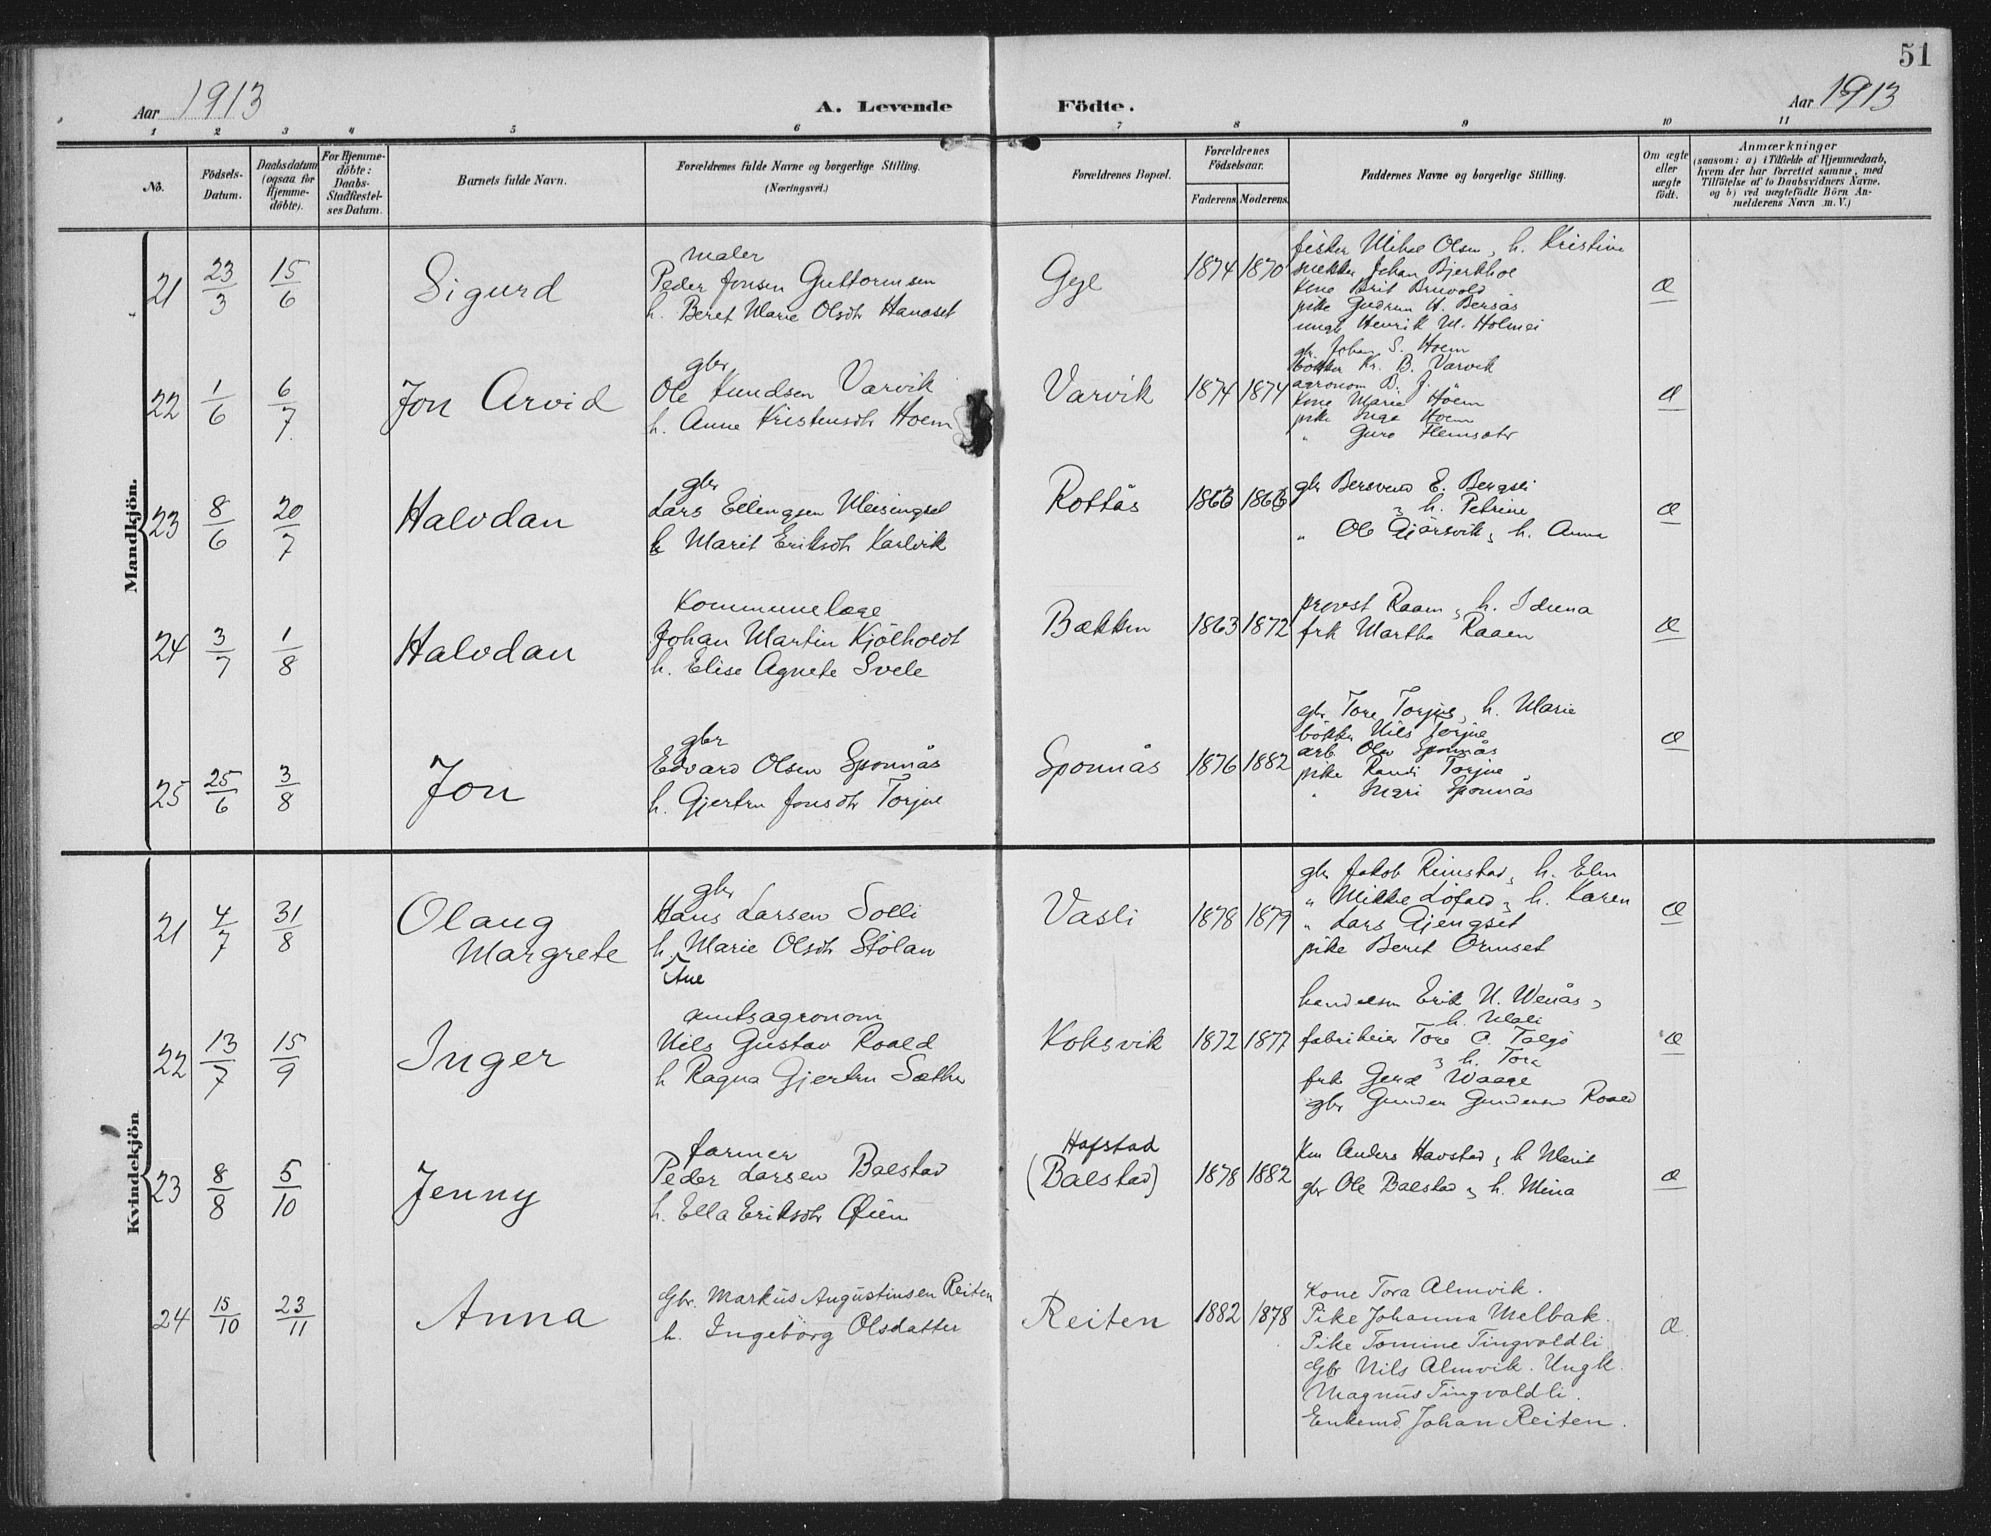 51
Aar 1913
A. Levende Födte.
Aar 1913
1 2 3 4 5 6 7 8 9 10 11
No.
Födsels-Datum.
Daabsdatum (ogsaa for Hjemme-döbte).
For Hjemme-döbte: Daabs-Stadfæstel-ses Datum.
Barnets fulde Navn.
Forældrenes fulde Navne og borgerlige Stilling.
(Næringsvei.)
Forældrenes Bopæl.
Forældrenes Födselsaar.
Faderens. Moderens.
Faddernes Navne og borgerlige Stilling.
Om ægte eller uægte födt.
Anmærkninger
(saasom: a) i Tilfælde af Hjemmedaab,
hvem der har forrettet samme, med
Tilföielse af to Daabsvidners Navne.
og b) ved uægtefödte Börn An-
melderens Navn m. V.)
Mandkjön.
21 23/3 15/6 Sigurd
maler
Peder Jonsen Guttormsen
h. Beret Marie Olsdtr Hanaset
Gyl 1874 1870
fisker Mikal Olsen, h. Kristine
snekker Johan Bjerkhol
Kone Brit Bruvold
pike Gudrun H. Bersås
ungk Henrik M. Holmei
Æ
22 1/6 6/7 Jon Arvid
gbr
Ole Knudsen Varvik
h. Anne Kristensdtr Hoem
Varvik 1874 1874
gbr. Johan S. Hoem
bökker Kr. B. Varvik
agronom B. J. "
Kone Marie Hoem
pike Inga Hoem
" Guro Flemsætr
Æ
23 8/6 20/7 Halvdan
gbr
Lars Ellingsen Meisingset
h Marit Eriksdtr Karlvik
Rottås 1866 1866
gbr Bersvend E. Bergsli
, h. Petrine
" Ole Gjörsvik, h. Anna
Æ
24 3/7 1/8 Halvdan
Kommunelæge
Johan Martin Kjölholdt
h. Elise Agnete Svele
Bækken 1863 1872
provst Raaen, h. Iduna
frk Martha Raaen
Æ
25 25/6 3/8 Jon
gbr
Edvard Olsen Sponnås
h. Gjertru Jonsdtr Torjue
Sponnås 1876 1882
gbr Tore Torjus, h. Marie
bökker Nils Torjue
arb. Olav Sponnås
pike Randi Torjue
" Mari Sponnås
Æ
Kvindekjön
21 4/7 31/8 Olaug Margrete
gbr
Hans Larsen Solli
h. Marie Olsdtr Stölan
Ane
Vasli 1878 1879
gbr Jakob Rimstad, h. Elen
" Mikkel Löfald, h. Karen
" Lars Gjengset
pike Beret Ormset
Æ
22 13/7 15/9 Inger
amtsagronom
Nils Gustav Roald
h Ragna Gjertru Sæther
Koksvik 1872 1877
handelsm Erik N. Wenås,
h. Mali
fabrikeier Tore O. Talgö
, h. Tora
frk Gerd Waage
gbr Gunder Gundersen Roald
Æ
23 8/8 5/10 Jenny
farmer
Peder Larsen Balstad
h. Ella Eriksdtr Öien
Hafstad
(Balstad) 1878 1882
Km Anders Havstad, h Marit
gbr Ole Balstad, h. Mina
Æ
24 15/10 23/11 Anna
Gbr. Markus Augustinsen Reiten
h. Ingeborg Olsdatter
Reiten 1882 1878
Kone Tora Almvik.
Pike Johanna Melbak.
Pike Tomine Tingvoldli.
Gbr Nils Almvik. Ungk.
Magnus Tingvoldli.
Enkemd Johan Reiten.
Æ.